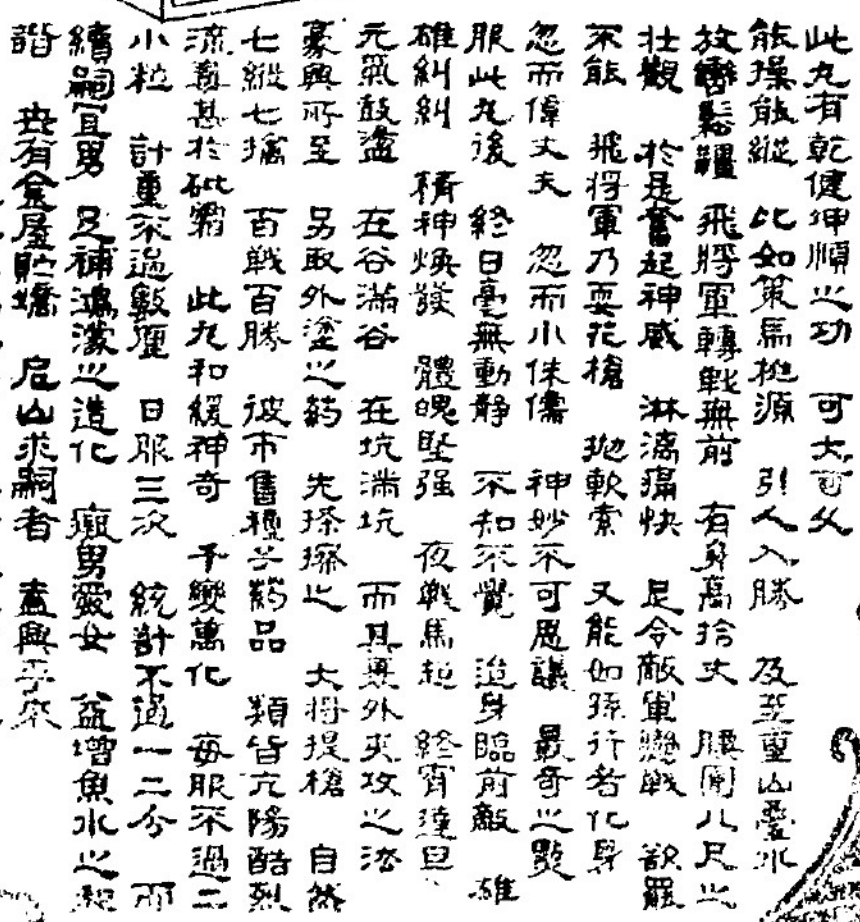 此丸有乾健坤順之功　可大可久
能操能縱　比如策馬桃源　引人入勝　及至重山疊水
放轡鬆韁　飛將軍轉戰無前　有身高拾丈　腰圍八尺之
壯觀　於是奮起神威　淋漓痛快　足令敵軍　戰　欲罷
不能　飛將軍乃耍花槍　拋軟索　又能如孫行者化身
忽而偉丈夫　忽而小侏儒　神妙不可思議　最奇之點
服此丸後　終日毫無動静　不知不覺　迨身臨前敵　雄
雄糾糾　精神煥發　體魄堅强　夜戰馬超　終宵達旦
元氣鼓盪　在谷滿谷　在坑满坑　而其裏外夾攻之法
豪興所至　另取外塗之药　先搽擦之　大将提槍　自然
七縱七擒　百戰百勝　彼市售種々药品　類皆亢陽酷烈
流毒甚於砒霜　此丸和緩神奇　千變萬化　每服不過二
小粒　計重不過數厘　日服三次　統計不過一二分　而
續嗣宜男　足補鴻濛之造化　痴男愛女　益增魚水之和
諧　世有金屋貯嬌　尼山求嗣者　盍興乎來